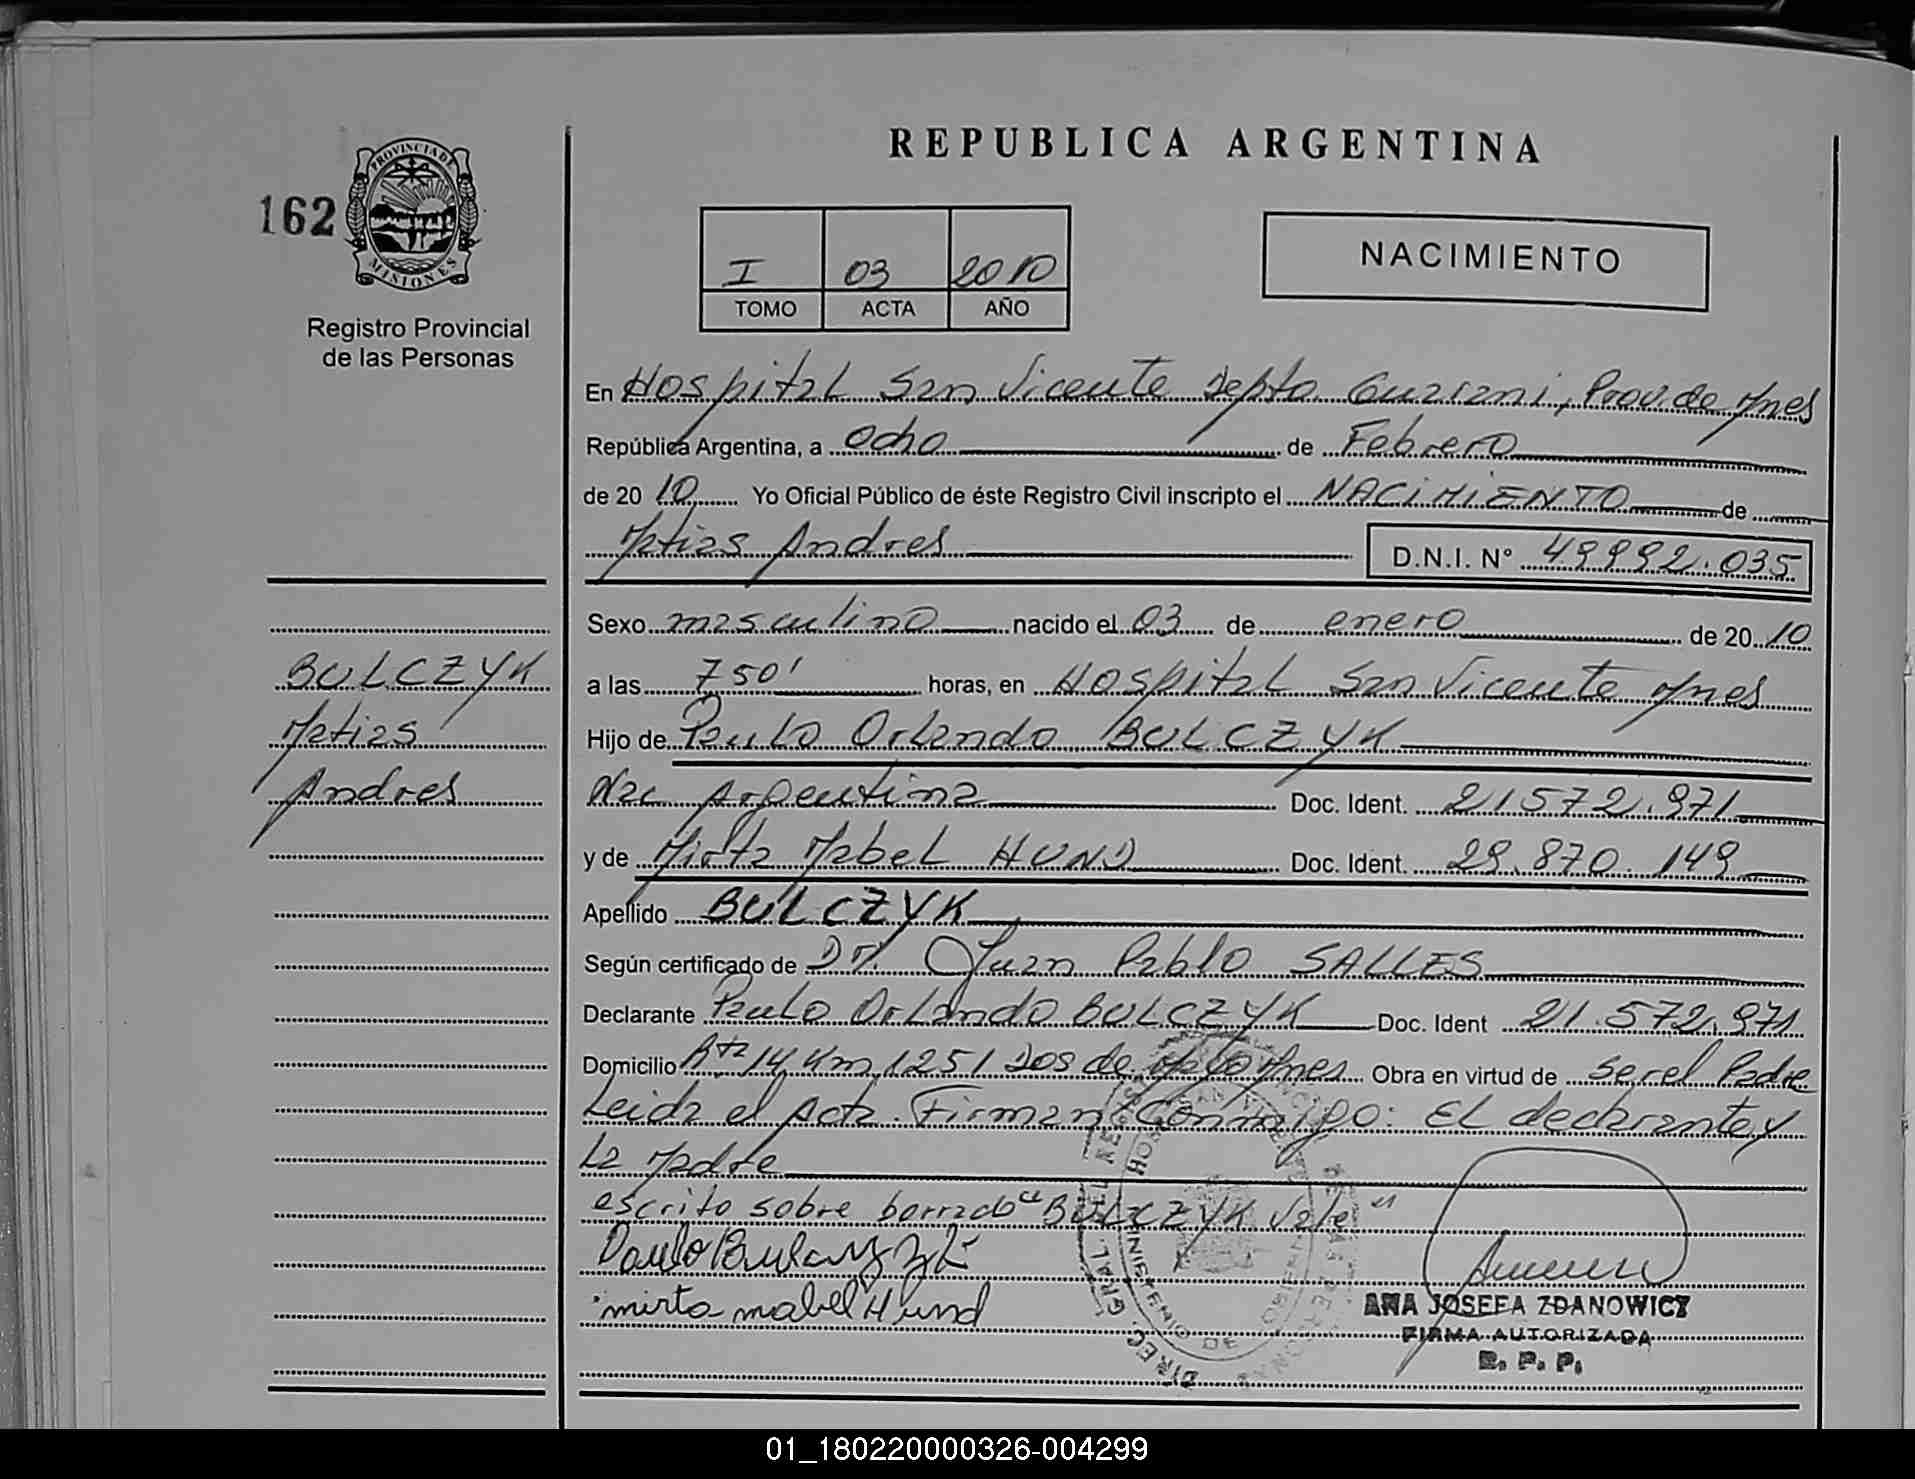 REPUBLICA ARGENTINA
162
PROVINCIA DE
MISIONES
Registro Provincial
de las Personas
I 03 2010
TOMO ACTA AÑO
NACIMIENTO
En Hospital San Vicente Depto. Guarani, Prov. de Mnes
República Argentina, a ocho de Febrero
de 20 10 Yo Oficial Público de éste Registro Civil inscripto el NACIMIENTO de
Matias Andres D.N.I. N° 49992.035
Sexo masculino nacido el 03 de enero de 20 10
a las 7 50' horas, en Hospital San Vicente Mnes
Hijo de Paulo Orlando BULCZYK
Nac Argentina Doc. Ident. 21572.971
y de Mirta Mabel HUND Doc. Ident. 29.870.149
Apellido BULCZYK
Según certificado de Dr. Juan Pablo SALLES
Declarante Paulo Orlando BULCZYK Doc. Ident 21.572.971
Domicilio Rta 14 Km 1251 Dos de Mayo Mnes Obra en virtud de ser el Padre
Leida el Acta. Firman Conmigo: El declarante y
La Madre
escrito sobre borrado "BULCZYK Vale"
mirta mabel Hund
BULCZYK
Matias
Andres
ANA JOSEFA ZDANOWICZ
FIRMA AUTORIZADA
R. P. P.
01_180220000326-004299